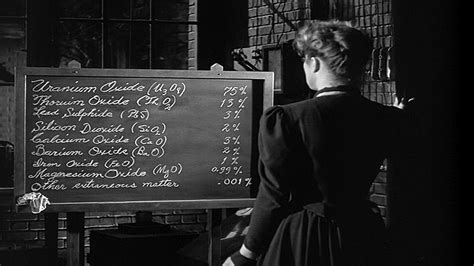 Uranium Oxide (U3O8) 75 %
Thorium Oxide (ThO2) 13 %
Lead Sulphide (PbS) 3 %
Silicon Dioxide (SiO2) 2 %
Calcium Oxide (CaO) 3 %
Barium Oxide (BaO) 2 %
Iron Oxide (FeO) 1 %
Magnesium Oxide (MgO) 0.99 %
Other extraneous matter .001 %